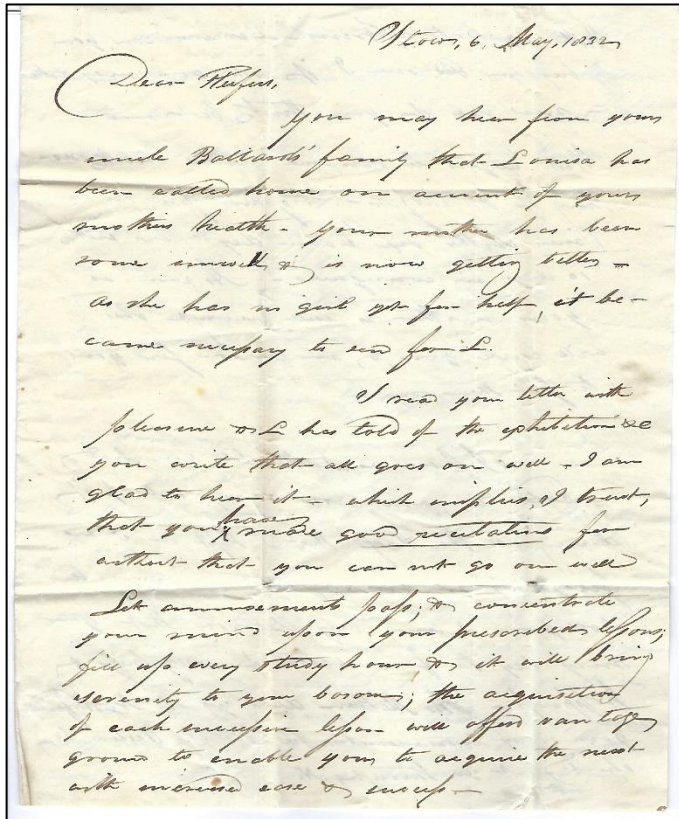 Stow, 6, May, 1832
Dear Rufus,
You may hear from your
uncle Ballard's family that Louisa has
been called home on account of your
mothers health - your mother has been
some unwell & is now getting better -
as she has no girl yet for help, it be-
came necessary to send for L.
I read your letter with
pleasure & L has told of the exhibition &c
you write that all goes on well - I am
glad to hear it - which implies, I trust,
that you have made good recitations for
without that you can not go on well
Let amusements pass; & concentrate
your mind upon your prescribed lessons;
fill up every study hour & it will bring
serenity to your bosom; the acquisition
of each successive lesson will afford vantage
ground to enable you to acquire the next
with increased ease & success -